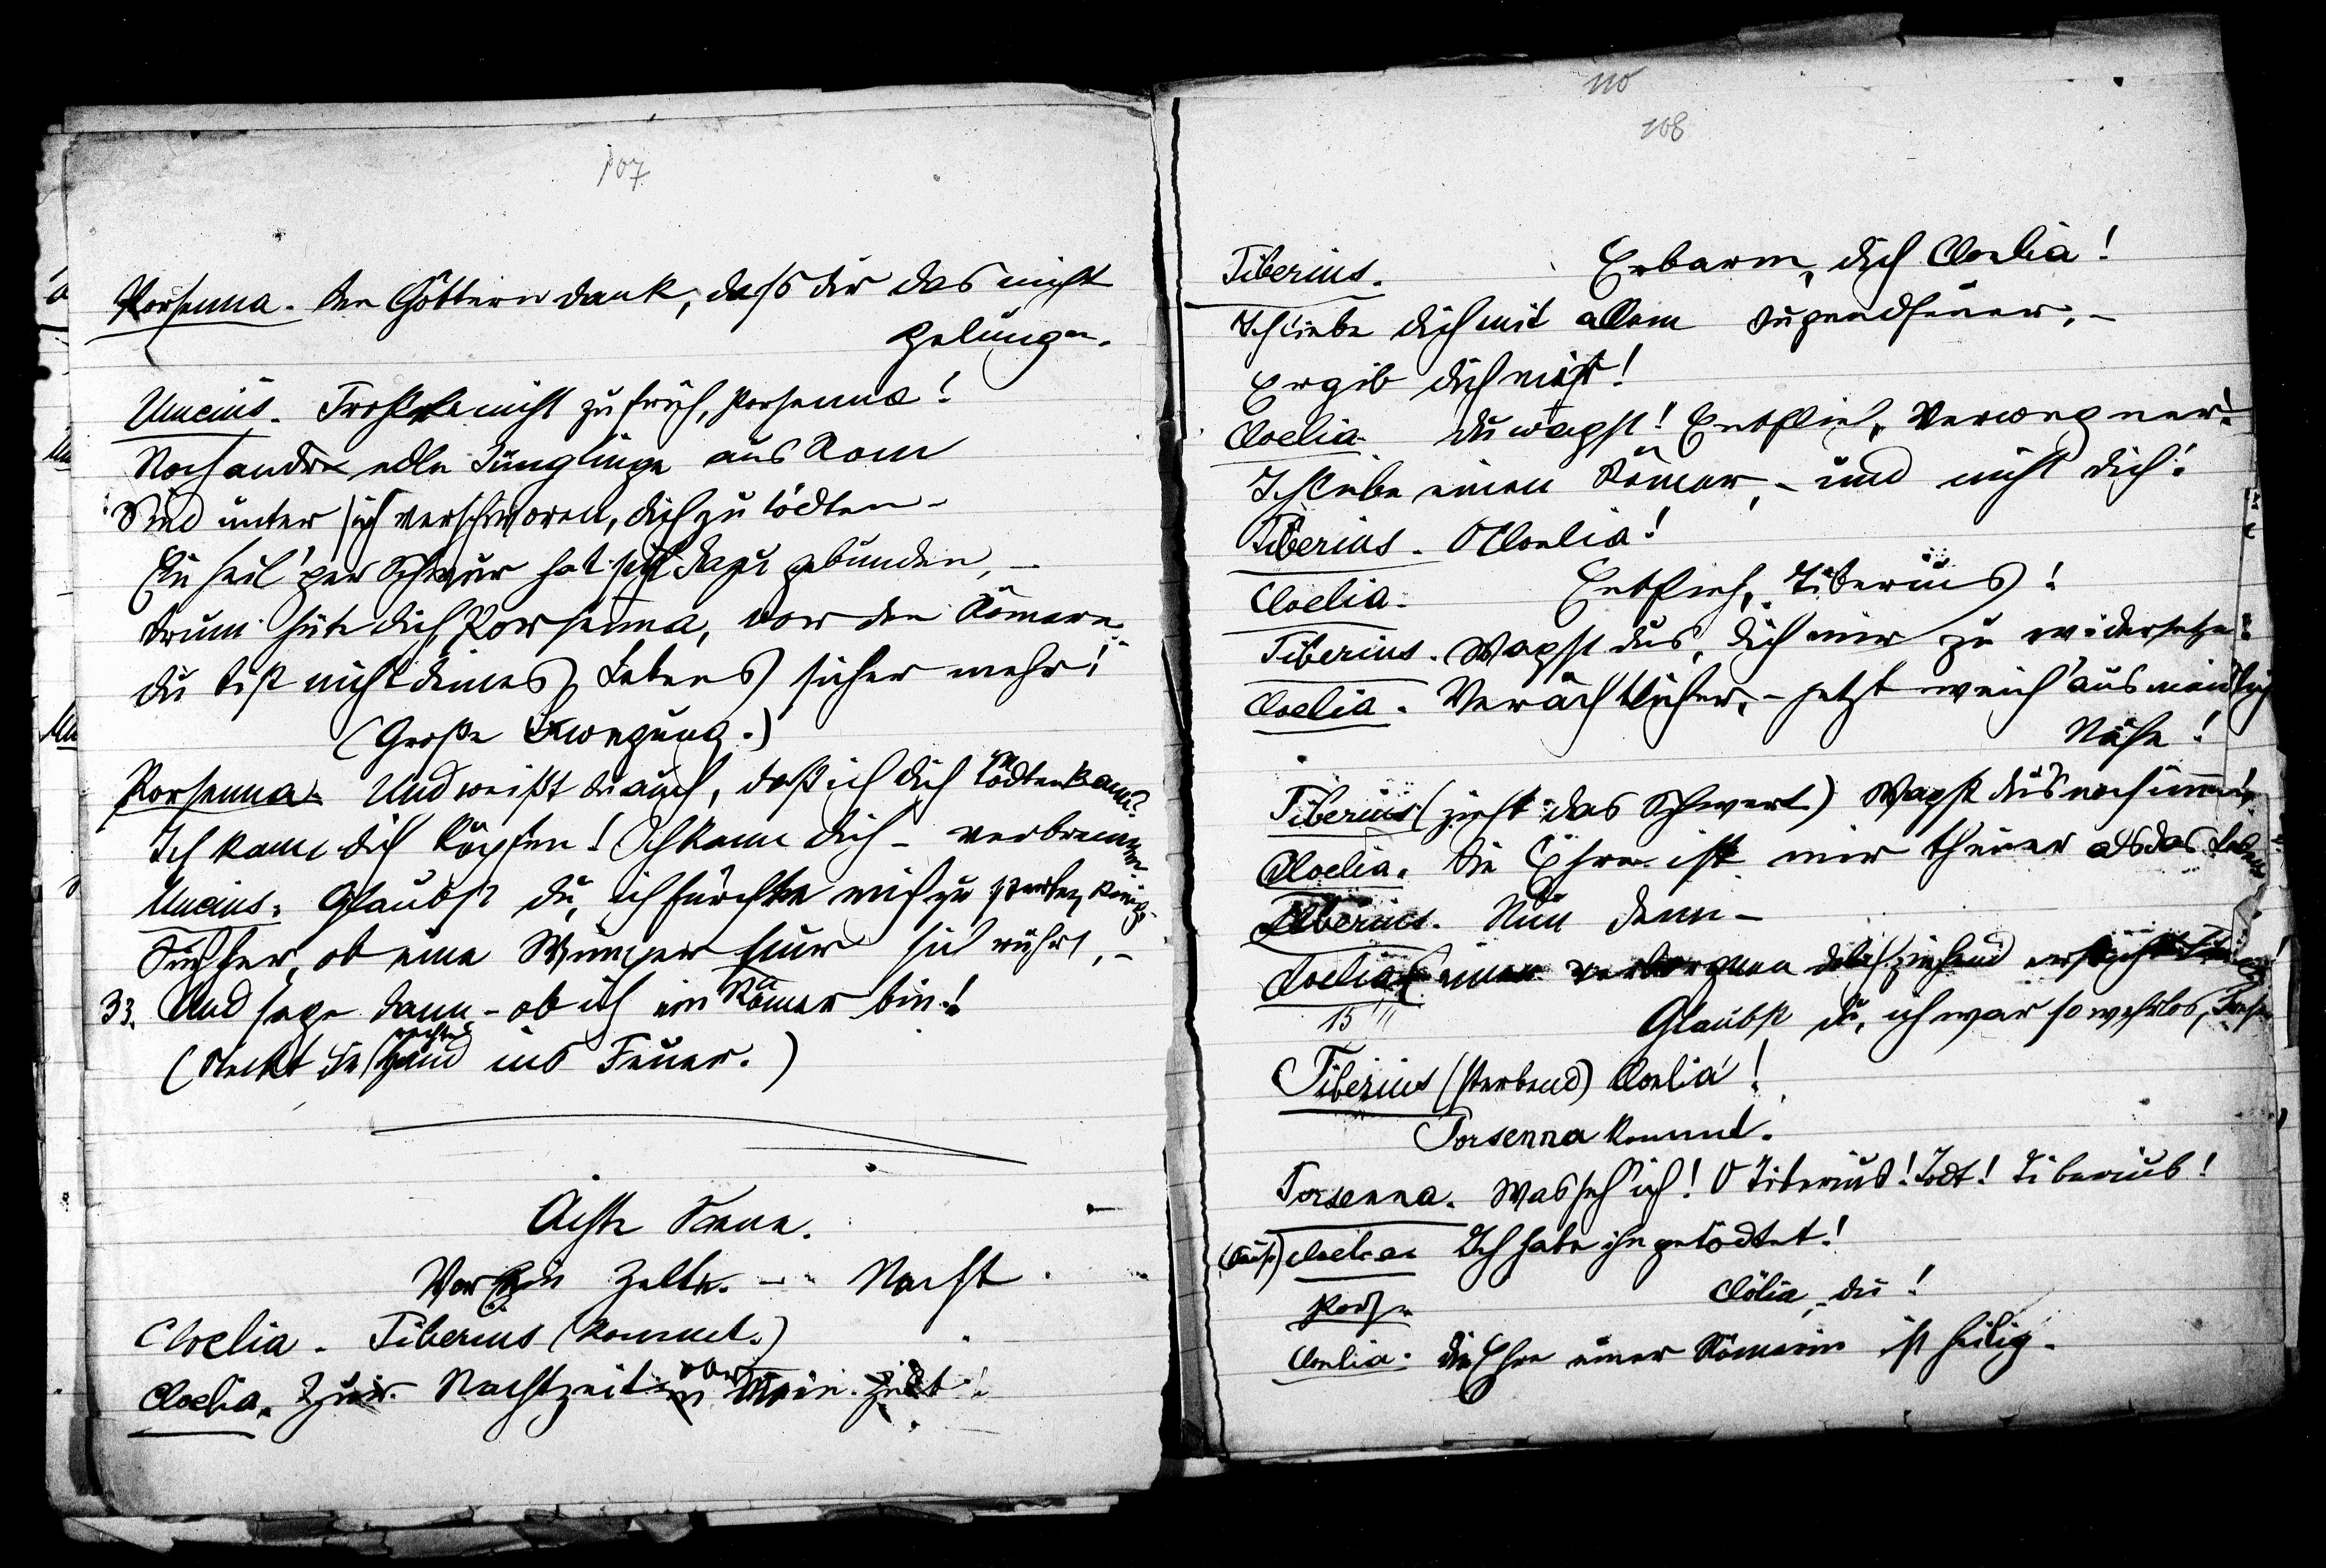 107
Porsenna. Den Göttern dank, dass dir das nicht
gelungen.
Mucius. Frohlocke nicht zu früh, Porsenna!
Noch andre edle Jünglinge aus Rom
Sind unter sich verschworen, dich zu tödten –
Ein heil'ger Schwur hat sich dazu gebunden, –
Drum hüte dich, Porsenna, vor den Römern.
Du bist nicht deines Lebens sicher mehr!
(Große Bewegung.)
Porsenna. Und weißt du auch, daß ich dich tödten kann?
Ich kann dich köpfen! Ich kann dich – verbrennen
Mucius. Glaubst du, ich fürchte mich zu sterben, König.
Sieh her, ob eine Wimper hier sich rührt, –
33. Und sage dann – ob ich ein Römer bin!
(Steckt die rechte Hand ins Feuer.)
Achte Scene.
Vor den Zelten. – Nacht.
Cloelia. Tiberius (kommt.)
Cloelia. Zur Nachtzeit vor mein Zelt!
110
108
Tiberius. Erbarm, dich Cloelia!
Ich liebe dich mit allem Jugendfeuer, –
Ergib dich mir!
Cloelia. Du wagst! Entflieh, Verwegner!
Ich liebe einen Römer, – und nicht dich!
Tiberius. O Cloelia!
Cloelia. Entflieh, Tiberius!
Tiberius. Wagst dus, dich mir zu widersetzen?
Cloelia. Verächtlicher, – jetzt weich aus meiner
Nähe!
Tiberius (zieht das Schwert) Wagst du's noch immer?
Cloelia. Die Ehre ist mir theurer als das Leben
Tiberius. Nun denn –
Cloelia (einen verborgnen dolch ziehend ersticht
15 Glaubst du, ich war so wehrlos,
Tiberius (sterbend) Cloelia!
Porsenna kommt.
Porsenna. Was seh' ich! O Tiberius! Todt! Tiberius!
Cloelia. Ich habe ihn getödtet!
Pors. Clölia, du!
Cloelia. Die Ehre einer Römerin ist heilig.